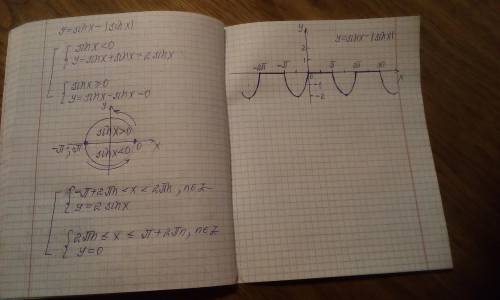 y=sinx-|sinx|
sinx<0
y=sinx+sinx=2sinx
sinx≥0
y=sinx-sinx=0
y
sinx>0
-π; π
0
x
sinx<0
-π+2πn<x<2πn, n∈Z
y=2sinx
2πn≤x≤π+2πn, n∈Z
y=0
y
y=sinx-|sinx|
2
1
-2π
-π
0
π
2π
3π
x
-1
-2